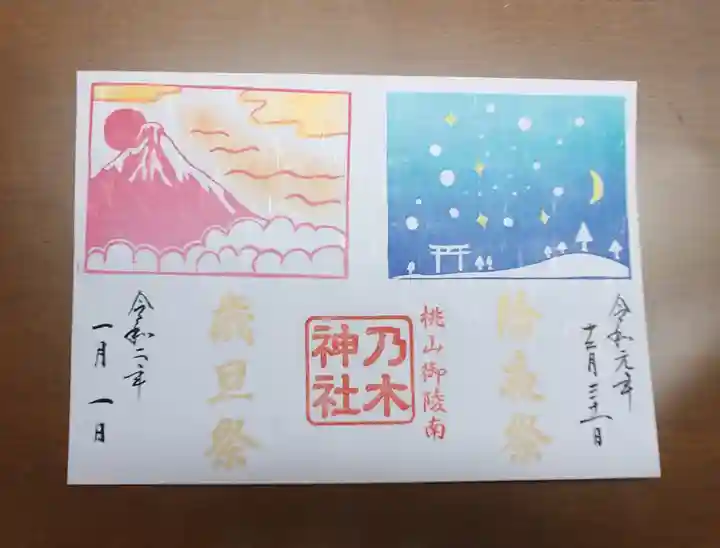 令和元年
十二月三十一日
除夜祭
桃山御陵南
乃木
神社
歳旦祭
令和二年
一月一日